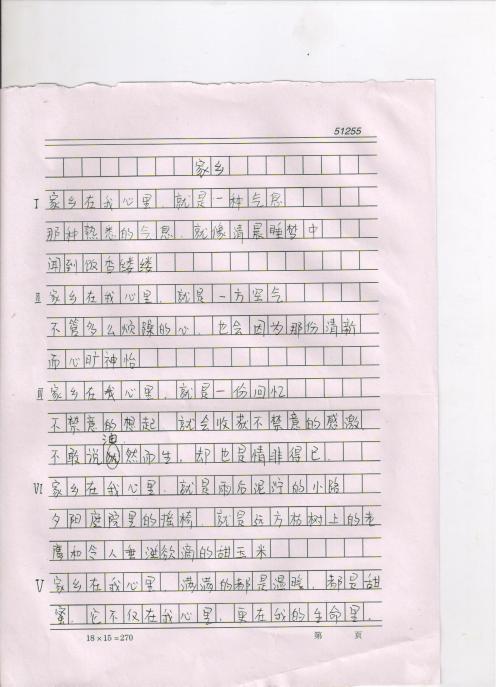 51255
家乡
I 家乡在我心里，就是一种气息
那种熟悉的气息，就像清晨睡梦中
闻到饭香缕缕
II 家乡在我心里，就是一方空气
不管多么烦躁的心，也会因为那份清新
而心旷神怡
III 家乡在我心里，就是一份回忆
不禁意的想起，就会收获不禁意的感激
不敢说油然而生，却也是情非得已．
VI 家乡在我心里，就是雨后泥泞的小路
夕阳庭院里的摇椅，就是远方枯树上的老
鹰和令人垂涎欲滴的甜玉米
V 家乡在我心里，满满的都是温暖，都是甜
蜜，它不仅在我心里，更在我的生命里．
18×15=270 第 页